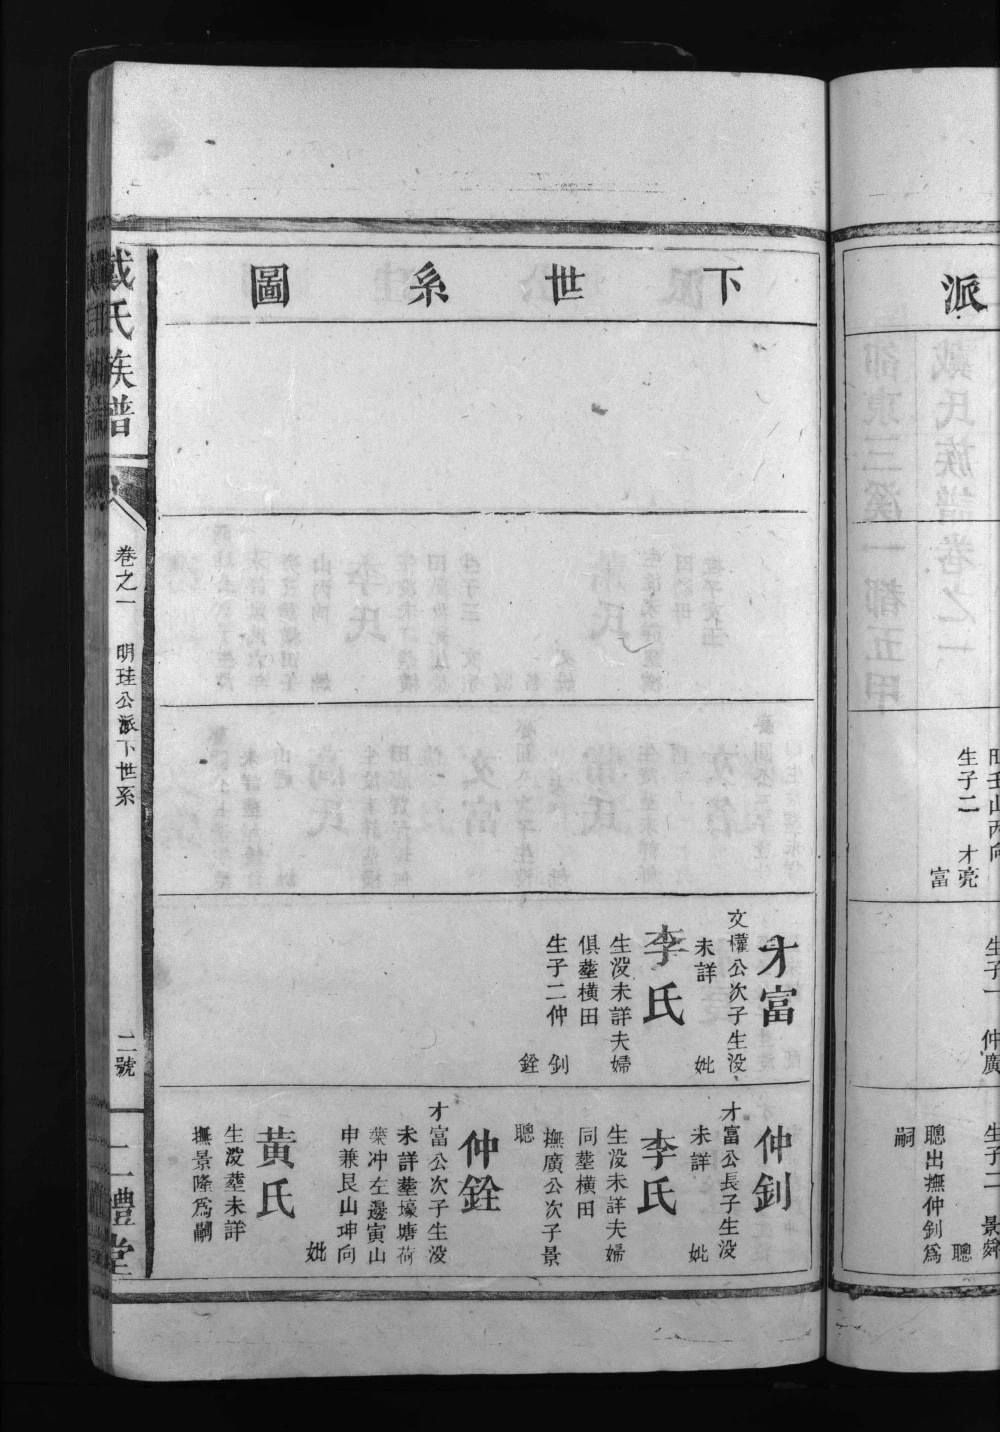 派
旺壬山丙向
生子二 才亮
富
生子一 仲廣
生子二 景舜
聰
聰出撫仲釗爲
嗣
下世系圖
才富
文懽公次子生没
未詳 妣
李氏
生没未詳夫婦
俱塟橫田
生子二仲 釗
銓
仲釗
才富公長子生没
未詳 妣
李氏
生没未詳夫婦
同塟橫田
撫廣公次子景
聰
仲銓
才富公次子生没
未詳塟壕塘荷
葉冲左邊寅山
申兼艮山坤向
妣
黃氏
生没塟未詳
撫景隆爲嗣
戴氏族譜
卷之一 明珪公派下世系
二號
二禮堂